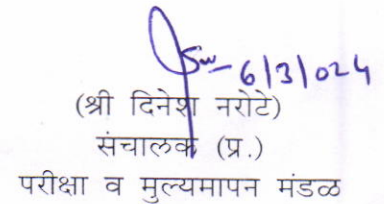 6/3/024
(श्री दिनेश नरोटे)
संचालक (प्र.)
परीक्षा व मुल्यमापन मंडळ